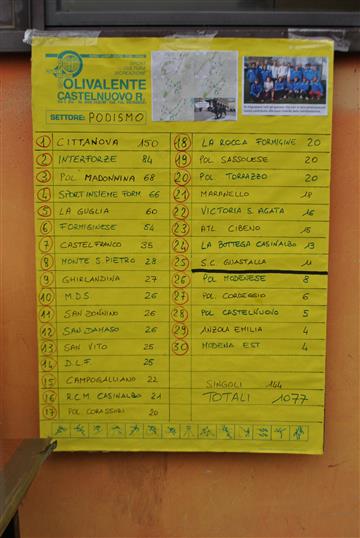 SPORT
CULTURA
RICREAZIONE
POLIVALENTE
CASTELNUOVO R.
SETTORE: PODISMO
1 CITTANOVA 150
2 INTERFORZE 84
3 POL MADONNINA 68
4 SPORTINSIEME FORM. 66
5 LA GUGLIA 60
6 FORMIGINESE 54
7 CASTELFRANCO 35
8 MONTE S. PIETRO 28
9 GHIRLANDINA 27
10 M.D.S. 26
11 SAN DONNINO 26
12 SAN DAMASO 26
13 SAN VITO 25
14 D.L.F. 25
15 CAMPOGALLIANO 22
16 R.C.M. CASINALBO 21
17 POL CORASSORI 20
18 LA ROCCA FORMIGINE 20
19 POL SASSOLESE 20
20 POL TORRAZZO 20
21 MARANELLO 18
22 VICTORIA S. AGATA 16
23 ATL CIBENO 15
24 LA BOTTEGA CASINALBO 13
25 S.C. GUASTALLA 11
26 POL MODENESE 8
27 POL CORDEGGIO 6
28 POL CASTELNUOVO 5
29 ANZOLA EMILIA 4
30 MODENA EST 4
SINGOLI 144
TOTALI 1077